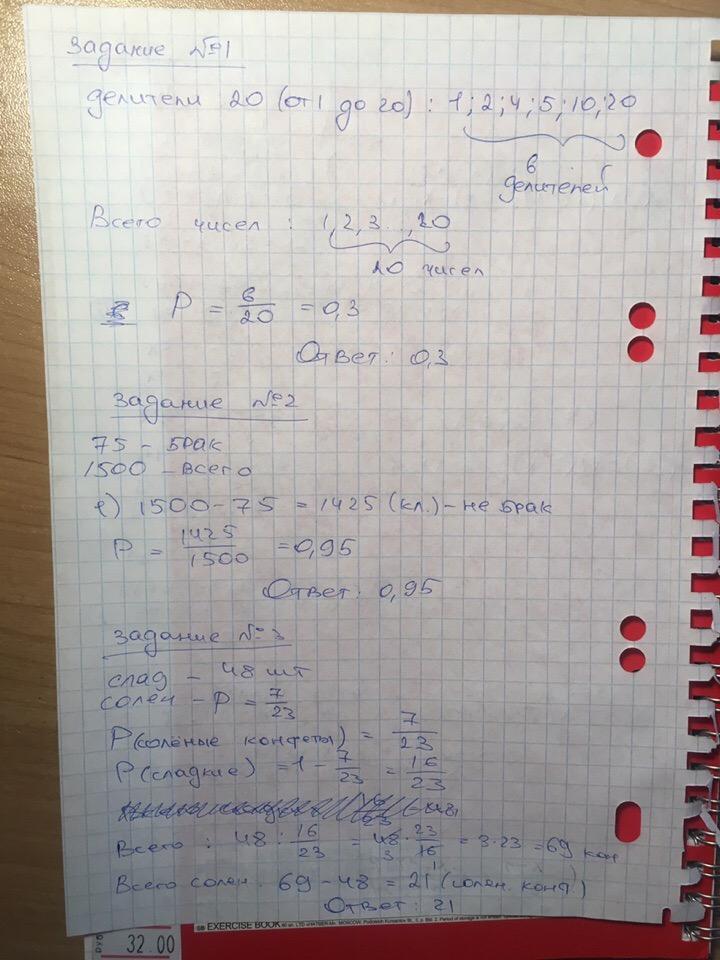 Задание №1
делители 20 (от 1 до 20) : 1; 2; 4; 5; 10; 20
6
делителей
Всего чисел : 1, 2, 3...,20
20 чисел
P = 6/20 = 0,3
Ответ: 0,3
Задание №2
75 - брак
1500 - всего
1) 1500 - 75 = 1425 (кл.) - не брак
P = 1425/1500 = 0,95
Ответ: 0,95
Задание №3
слад - 48 шт
солен - P = 7/23
P(солёные конфеты) = 7/23
P(сладкие) = 1 - 7/23 = 16/23
Всего : 48 : 16/23 = 48 · 23/16 = 3·23 = 69 кон
3 1
Всего солен. 69 - 48 = 21 (солен. конф)
Ответ: 21
EXERCISE BOOK
32.00